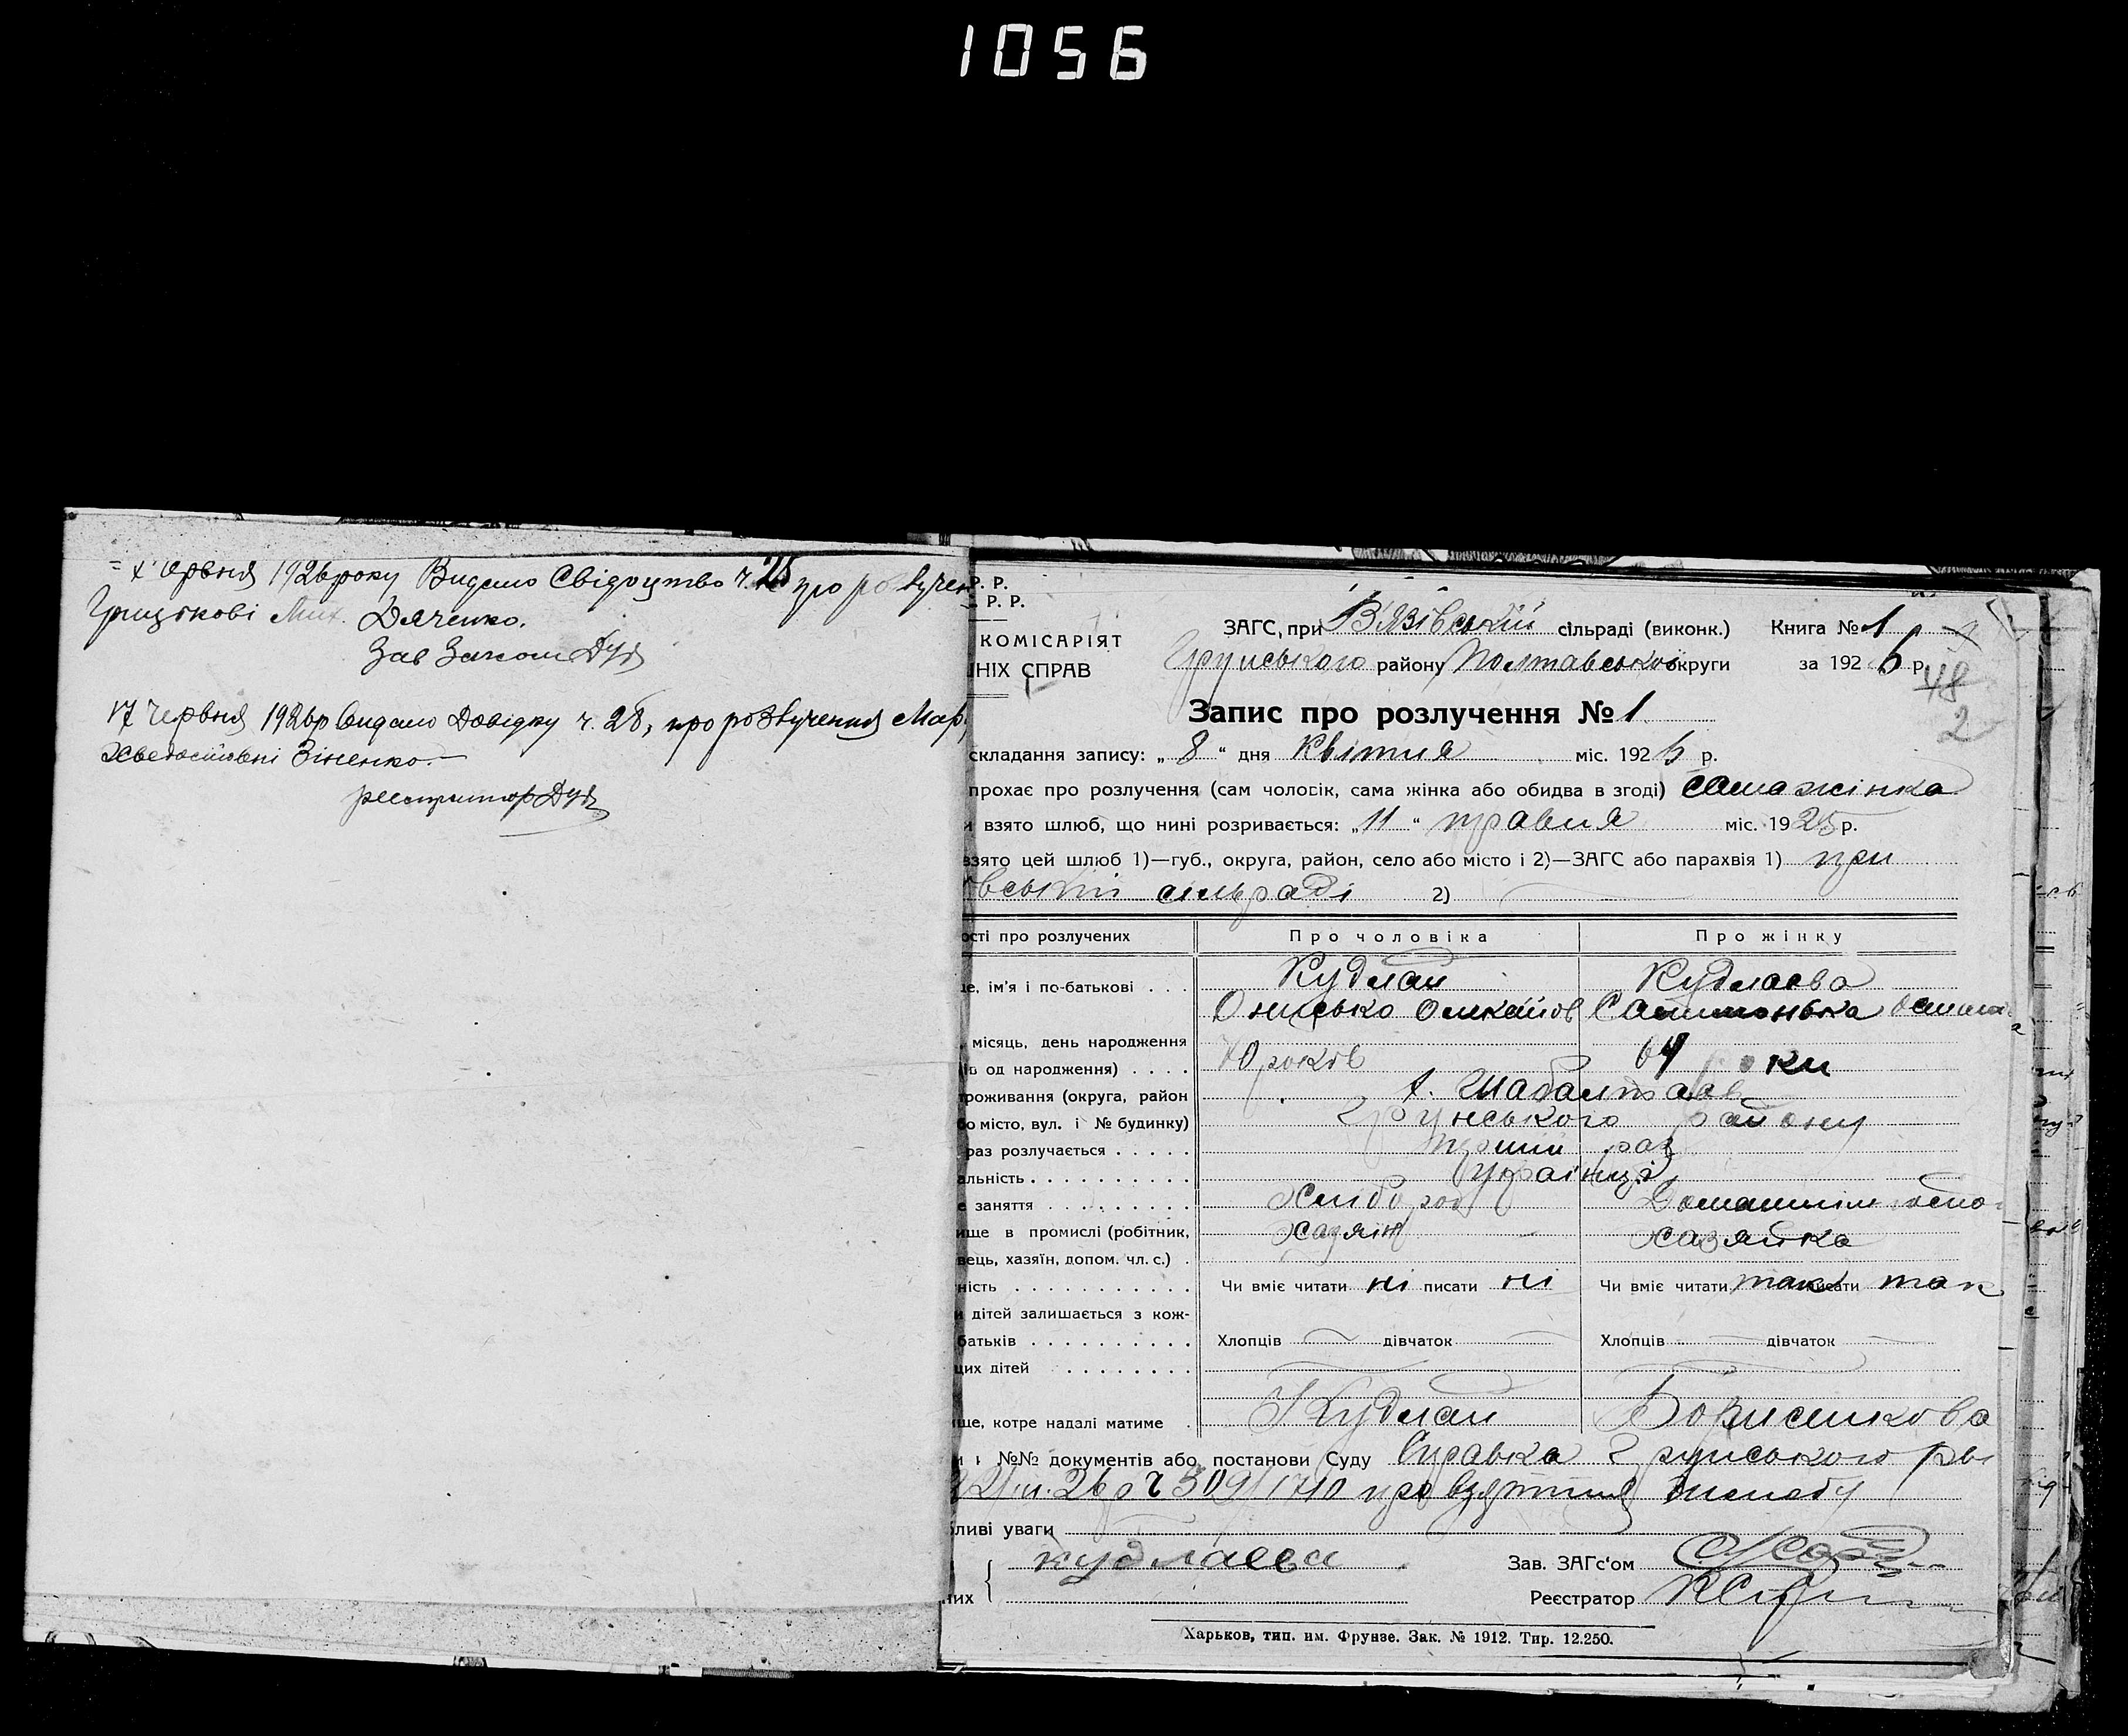 1056
Червня 1926 року Видано Свідоцтво ч. 25 про розлучен
Грицькові Мих. Дяченко.
Зав Загсом Дуб
17 Червня 1926р Видано Довідку ч. 26, про розлучення Мар
Хведосіївні Зіненко.
реєстратор Дуб
Р. Р.
Р. Р.
КОМІСАРІЯТ
НІХ СПРАВ
ЗАГС, при В'язівській сільраді (виконк.) Книга № 1
Грунського району Полтавської округи за 1926 р.
48
2
Запис про розлучення № 1
складання запису: „ 8 “ дня Квітня міс. 1926 р.
прохає про розлучення (сам чоловік, сама жінка або обидва в згоді) сама жінка
и взято шлюб, що нині розривається: „ 11 “ травня міс. 1925 р.
взято цей шлюб 1)—губ., округа, район, село або місто і 2)—ЗАГС або парахвія 1) при
вській сільраді 2)
ості про розлучених Про чоловіка Про жінку
це, ім'я і по-батькові . . . Кудлай Кудлаєва
Онисько
місяць, день народження
ів од народження) . . . . 70 років 64 роки
проживання (округа, район х. Шабалтаєв
бо місто, вул. і № будинку) Грунського району
раз розлучається . . . . . перший раз
альність . . . . . . . . . . . українці
е заняття . . . . . . . . . Хлібороб Домашнім госпо
ище в промислі (робітник, хазяїн хазяйка
вець, хазяїн, допом. чл. с.) .
ність . . . . . . . . . . . Чи вміє читати ні писати ні Чи вміє читати так писати так
и дітей залишається з кож-
батьків . . . . . . . . . . Хлопців дівчаток Хлопців дівчаток
цих дітей . . . . . . . . .
ище, котре надалі матиме . Кудлай Борисенкова
и і №№ документів або постанови Суду Справка Грунського
26 р ч 309/1710 про взяття
ливі уваги
кудлаева Зав. ЗАГс'ом
них Реєстратор
Харьков, тип. им. Фрунзе. Зак. № 1912. Тир. 12.250.